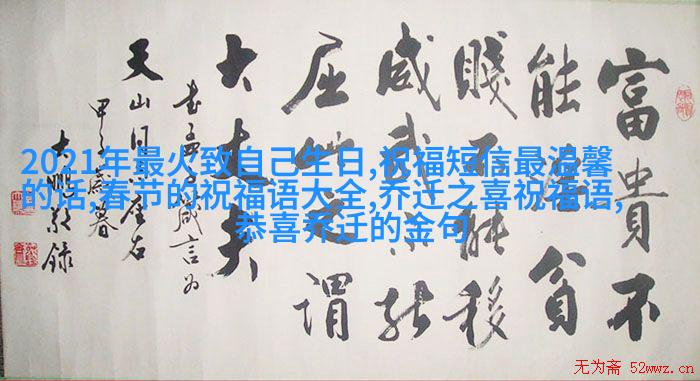 富貴不
能淫貧
賤不能移
威武不能
屈此之謂
大丈夫
天山同志座右
甲子歲暮
2021年最火致自己生日,祝福短信最温馨
的话,春节的祝福语大全,乔迁之喜祝福语,
恭喜乔迁的金句
无为斋 52wwz.cn